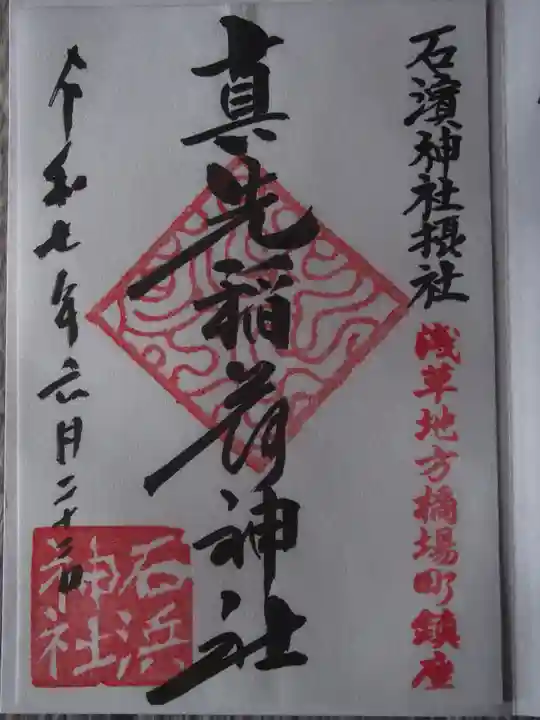 石濱神社摂社
浅草地方橋場町鎮座
真先稲荷神社
令和七年六月二十
石浜
神社